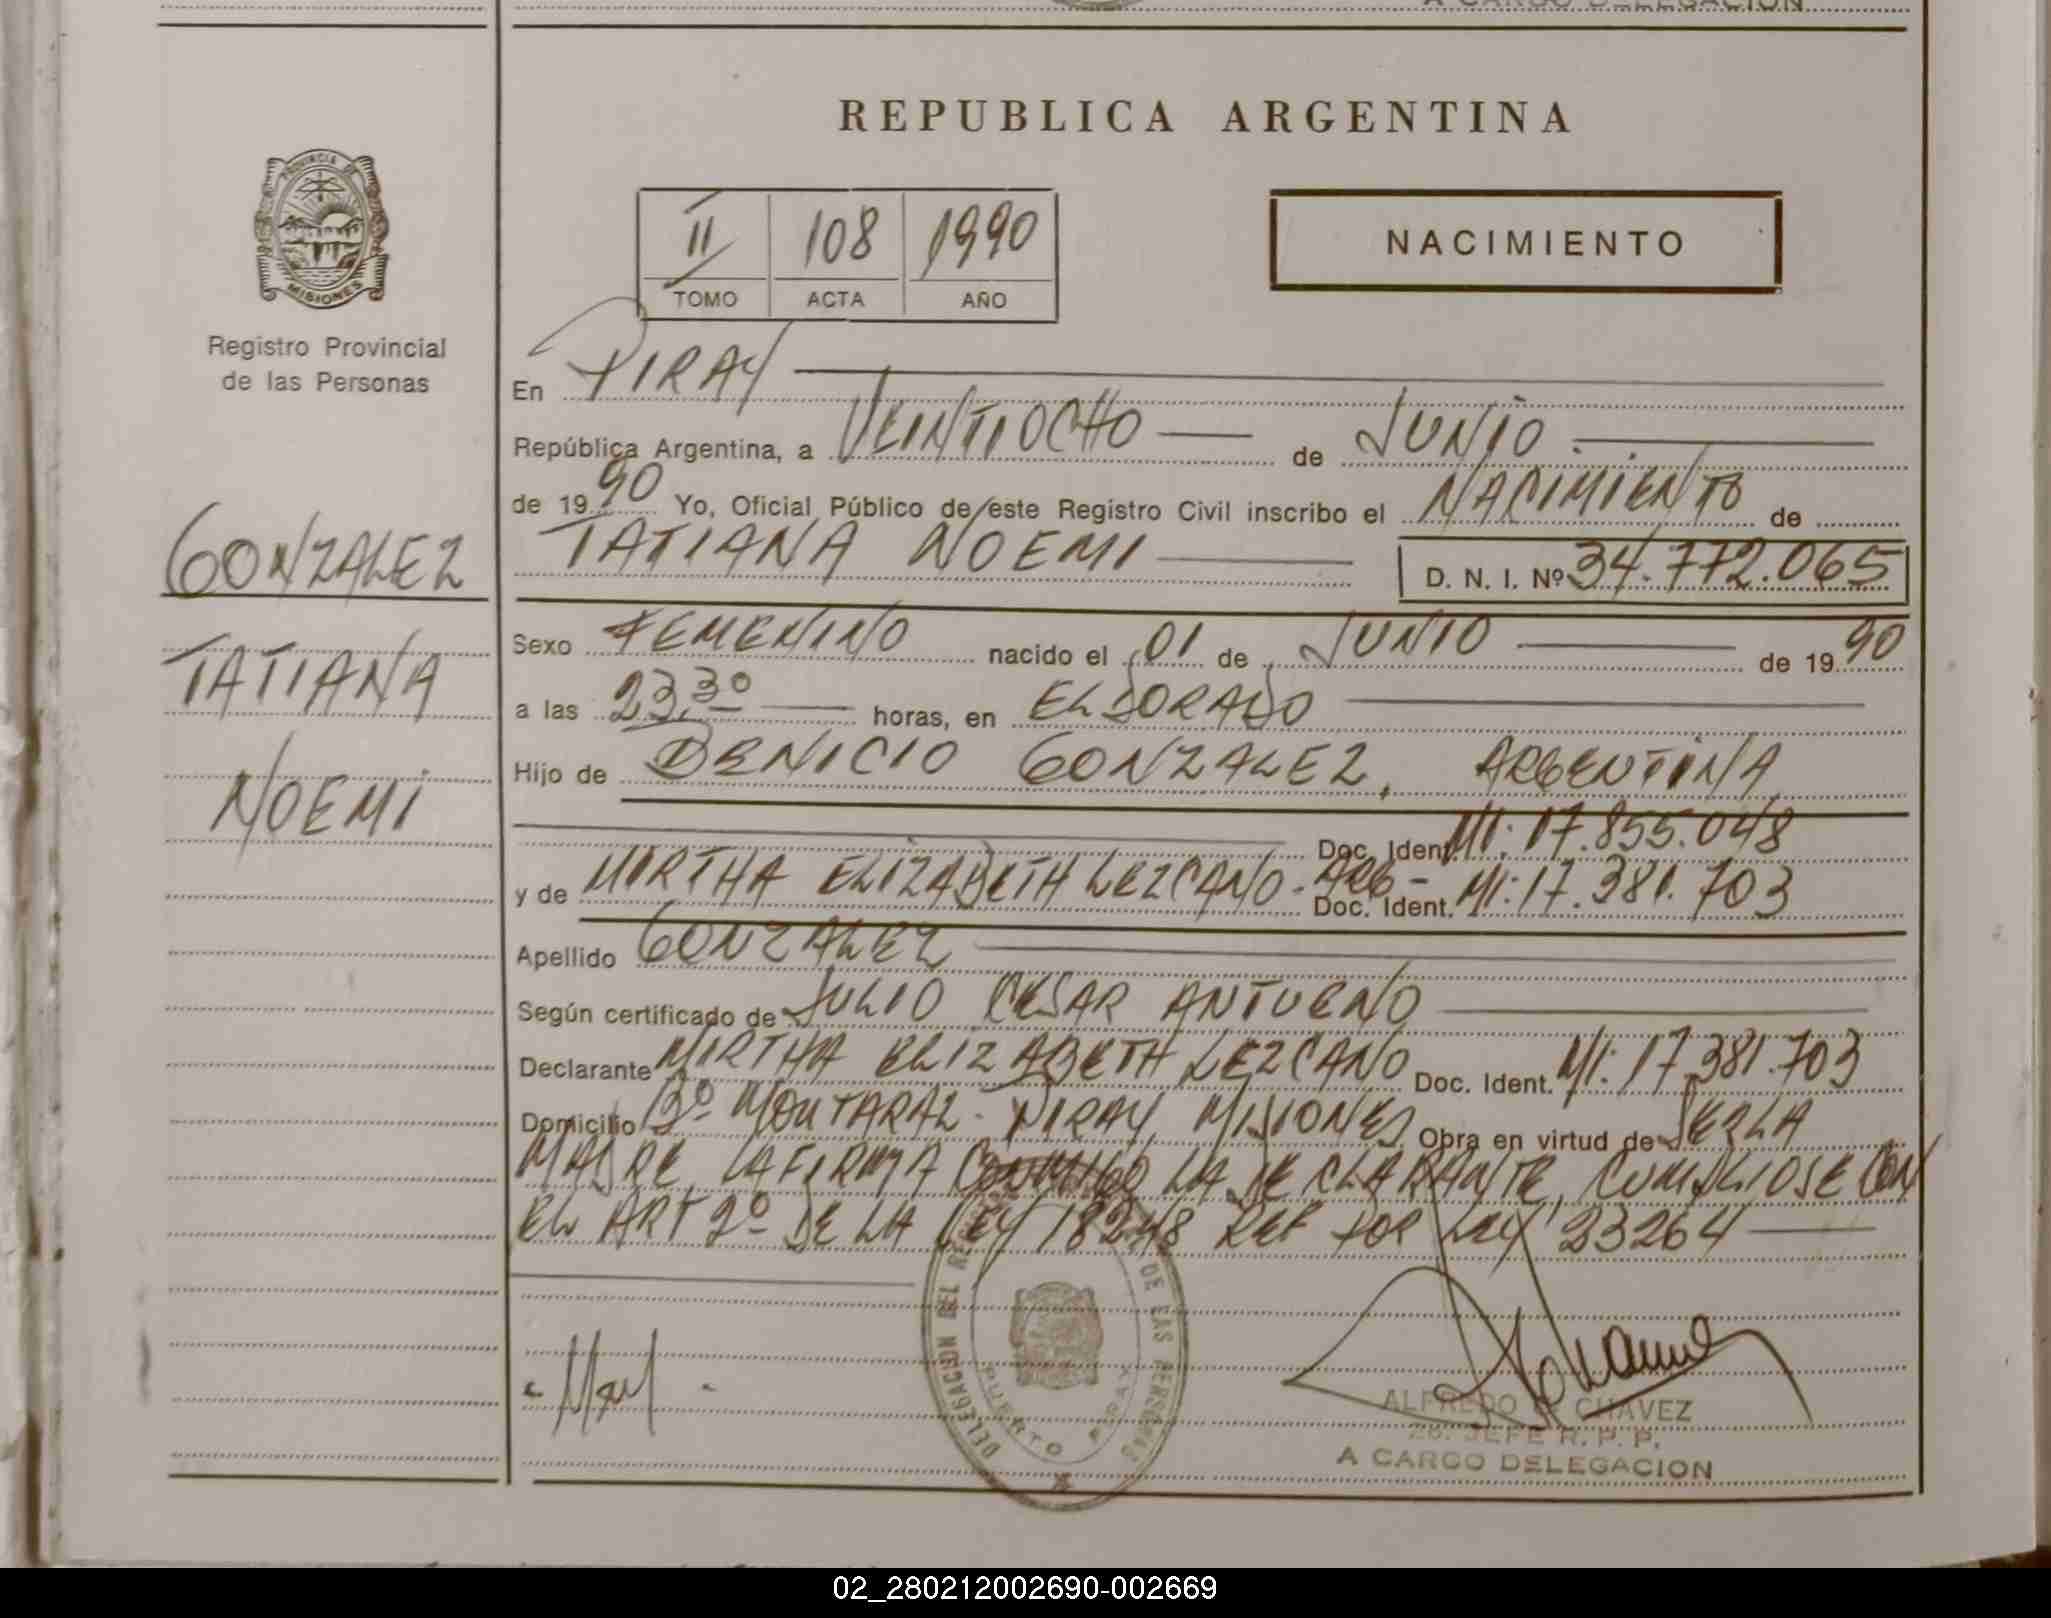 A CARGO DELEGACION
REPUBLICA ARGENTINA
PROVINCIA DE
MISIONES
Registro Provincial
de las Personas
GONZALEZ
TATIANA
NOEMI
II 108 1990
TOMO ACTA AÑO
NACIMIENTO
En PIRAY
República Argentina, a VEINTIOCHO de JUNIO
de 19 90 Yo, Oficial Público de este Registro Civil inscribo el NACIMIENTO de
TATIANA NOEMI D. N. I. Nº 34.772.065
Sexo FEMENINO nacido el 01 de JUNIO de 19 90
a las 23,30 horas, en ELDORADO
Hijo de DENICIO GONZALEZ, ARGENTINA
Doc. Ident. MI: 17.855.048
y de MIRTHA ELIZABETH LEZCANO - ARG - Doc. Ident. MI: 17.381.703
Apellido GONZALEZ
Según certificado de JULIO CESAR ANTUENO
Declarante MIRTHA ELIZABETH LEZCANO Doc. Ident. MI: 17.381.703
Domicilio Bº MONTARAL - PIRAY, MISIONES Obra en virtud de SER LA
MADRE, LA FIRMA LA DECLARANTE, CUMPLIOSE CON
EL ART 2º DE LA LEY 18248 REF POR LEY 23264
DELEGACION DEL DE LAS PERSONAS
PUERTO PIRAY
ALFREDO CHAVEZ
2º. JEFE R. P. P.
A CARGO DELEGACION
02_280212002690-002669